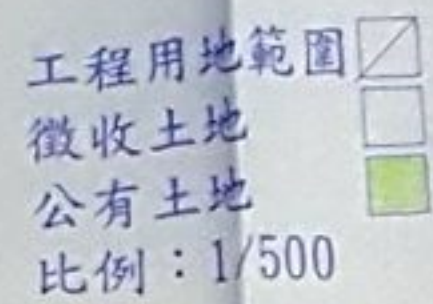 工程用地範圍
徵收土地
公有土地
比例：1/500